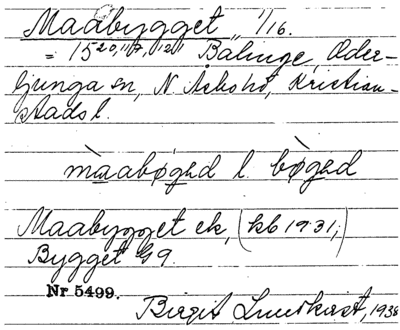 Maabygget 1/16.
= 15 20, 117, 121 Balinge, Oder-
ljunga sn, N. Åsbo hd, Kristian-
stads l.
màabǿgəd l. bǿgəd
Maabygget ek, (kb 1931,)
Bygget G9.
Nr 5499.
Birgit Lundkvist, 1938